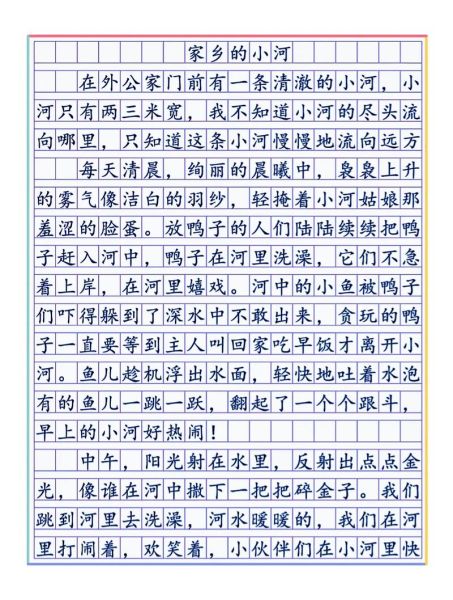 家乡的小河
在外公家门前有一条清澈的小河，小
河只有两三米宽，我不知道小河的尽头流
向哪里，只知道这条小河慢慢地流向远方
每天清晨，绚丽的晨曦中，袅袅上升
的雾气像洁白的羽纱，轻掩着小河姑娘那
羞涩的脸蛋。放鸭子的人们陆陆续续把鸭
子赶入河中，鸭子在河里洗澡，它们不急
着上岸，在河里嬉戏。河中的小鱼被鸭子
们吓得躲到了深水中不敢出来，贪玩的鸭
子一直要等到主人叫回家吃早饭才离开小
河。鱼儿趁机浮出水面，轻快地吐着水泡
有的鱼儿一跳一跃，翻起了一个个跟斗，
早上的小河好热闹！
中午，阳光射在水里，反射出点点金
光，像谁在河中撒下一把把碎金子。我们
跳到河里去洗澡，河水暖暖的，我们在河
里打闹着，欢笑着，小伙伴们在小河里快